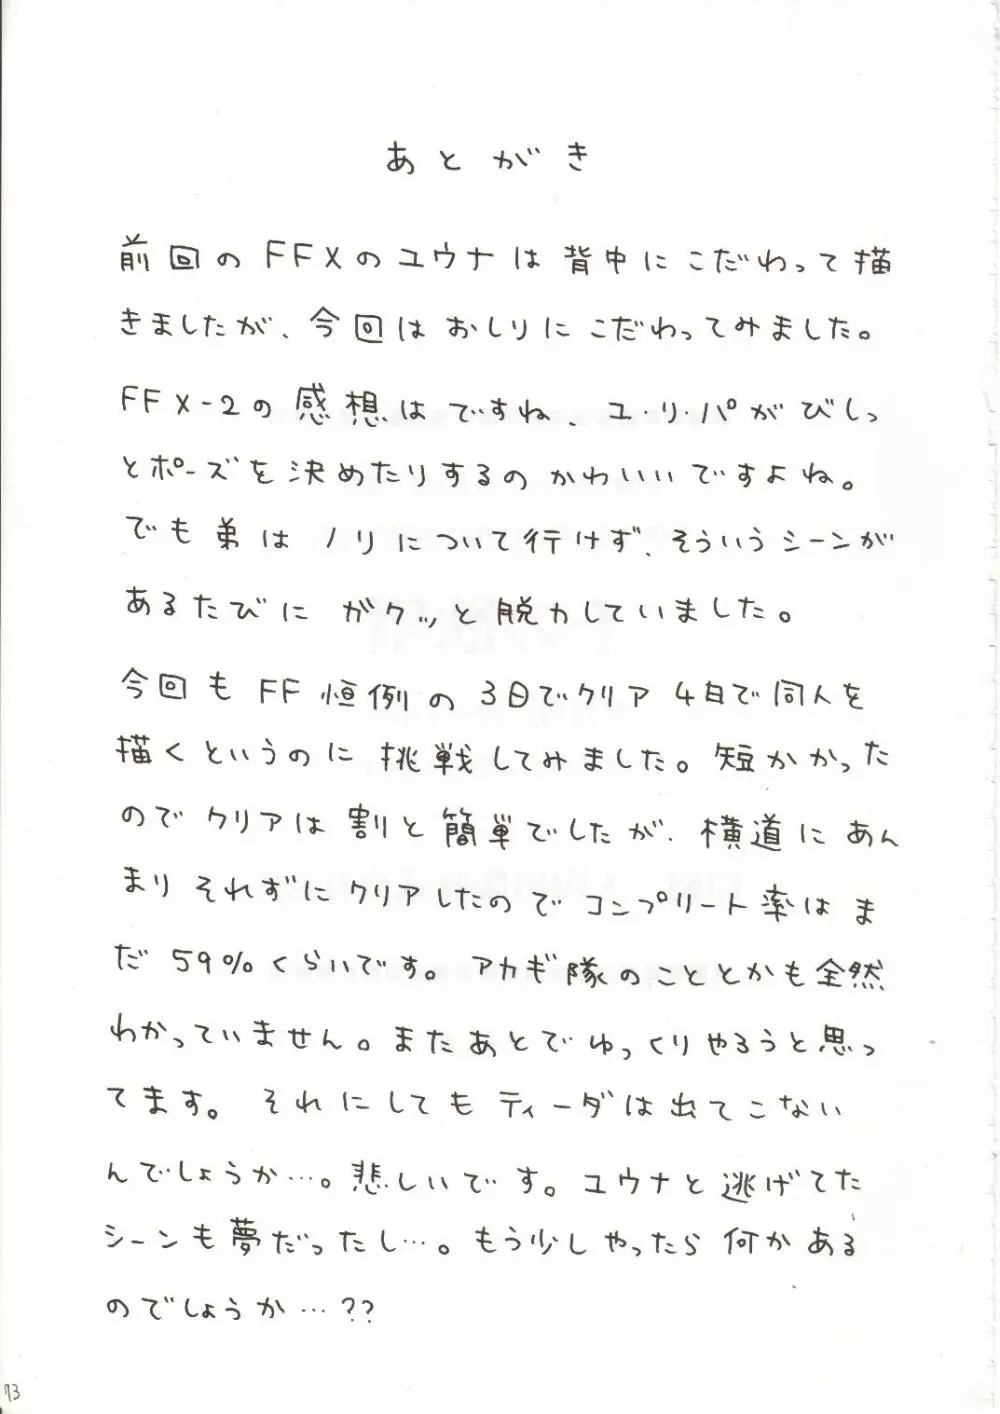 あとがき
前回のFFXのユウナは背中にこだわって描
きましたが、今回はおしりにこだわってみました。
FFX-2の感想はですね、ユ・リ・パがびしっ
とポーズを決めたりするのかわいいですよね。
でも弟はノリについて行けず、そういうシーンが
あるたびにガクッと脱力していました。
今回もFF恒例の3日でクリア4日で同人を
描くというのに挑戦してみました。短かかった
のでクリアは割と簡単でしたが、横道にあん
まりそれずにクリアしたのでコンプリート率はま
だ59%くらいです。アカギ隊のこととかも全然
わかっていません。またあとでゆっくりやろうと思っ
てます。それにしてもティーダは出てこない
んでしょうか…。悲しいです。ユウナと逃げてた
シーンも夢だったし…。もう少しやったら何かある
のでしょうか…??
73